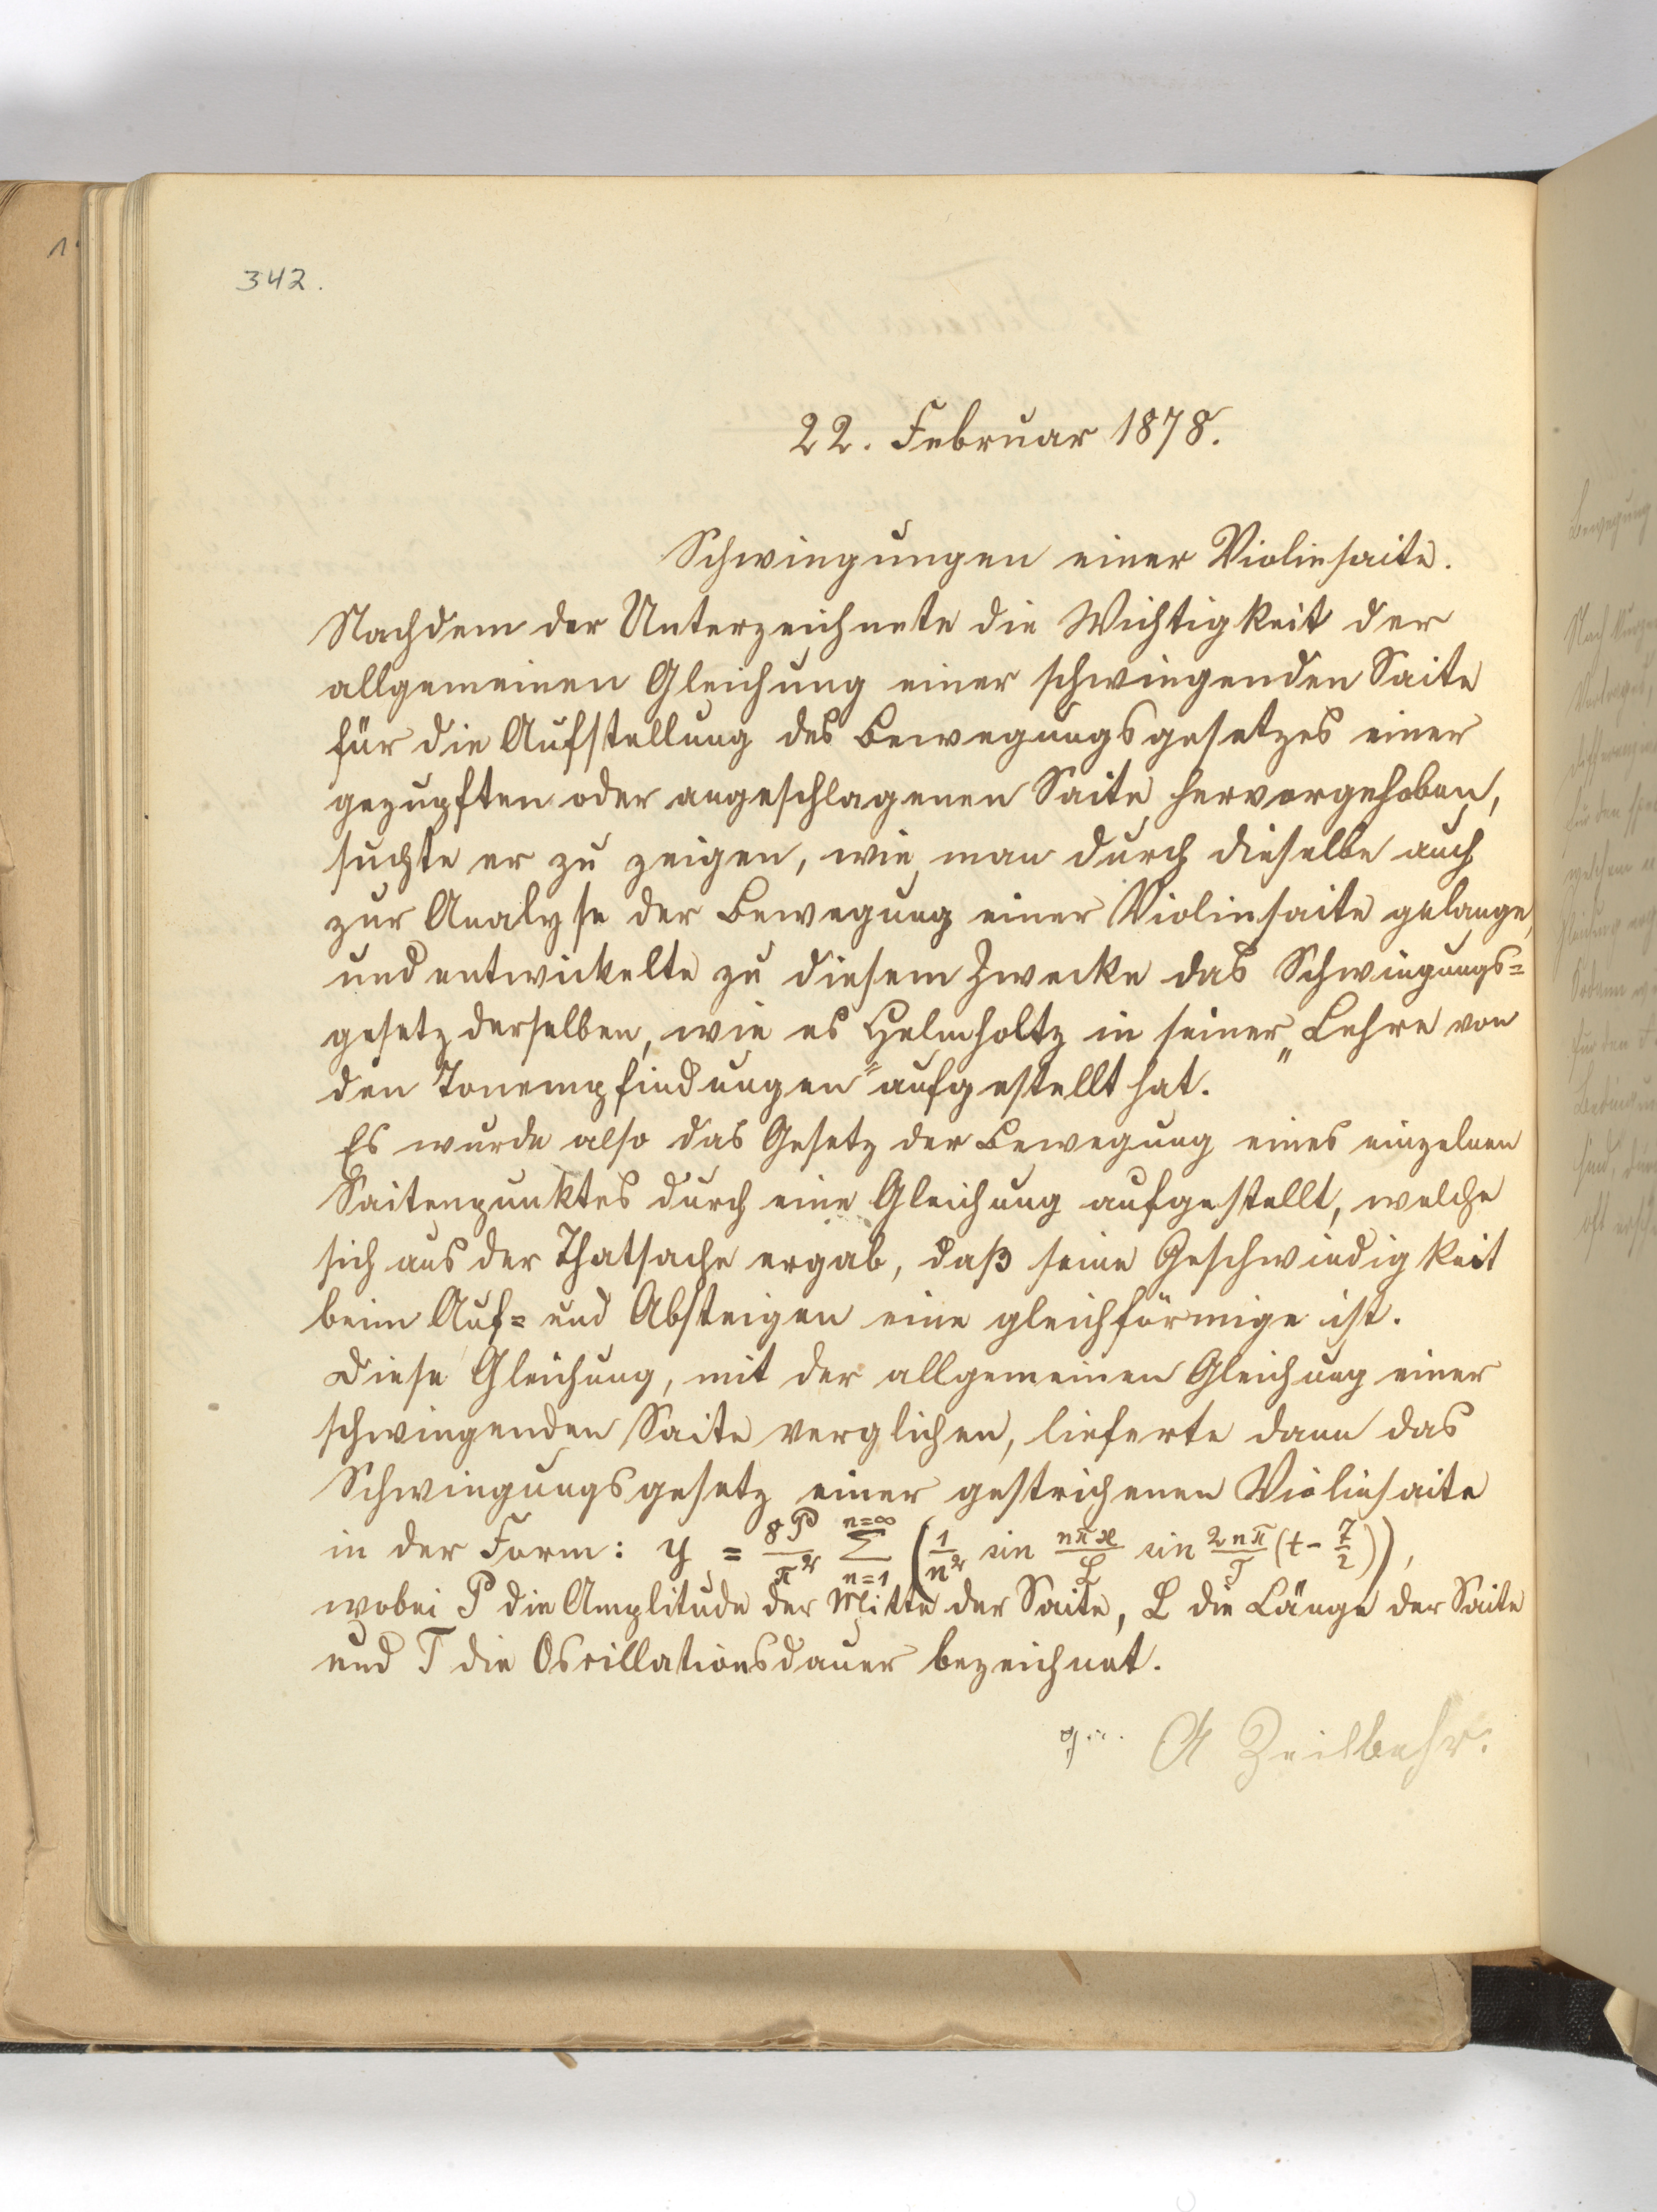 342.
22. Februar 1878.
Schwingungen einer Violinsaite.
Nachdem der Unterzeichnete die Wichtigkeit der
allgemeinen Gleichung einer schwingenden Saite
für die Aufstellung des Bewegungsgesetzes einer
gezupften oder angeschlagenen Saite hervorgehoben,
suchte er zu zeigen, wie man durch dieselbe auch
zur Analyse der Bewegung einer Violinsaite gelange,
und entwickelte zu diesem Zwecke das Schwingungs=
gesetz derselben, wie es Helmholtz in seiner „Lehre von
den Tonempfindungen" aufgestellt hat.
Es wurde also das Gesetz der Bewegung eines einzelnen
Saitenpunktes durch eine Gleichung aufgestellt, welche
sich aus der Thatsache ergab, daß seine Geschwindigkeit
beim Auf= und Absteigen eine gleichförmige ist.
Diese Gleichung, mit der allgemeinen Gleichung einer
schwingenden Saite verglichen, lieferte dann das
Schwingungsgesetz einer gestrichenen Violinsaite
in der Form: y = 8P/π² Σ n=1 n=∞ (1/n² sin nπx/L sin 2nπ/T (t - T/2)),
wobei P die Amplitude der Mitte der Saite, L die Länge der Saite
und T die Oscillationsdauer bezeichnet.
A Zeilbehr.